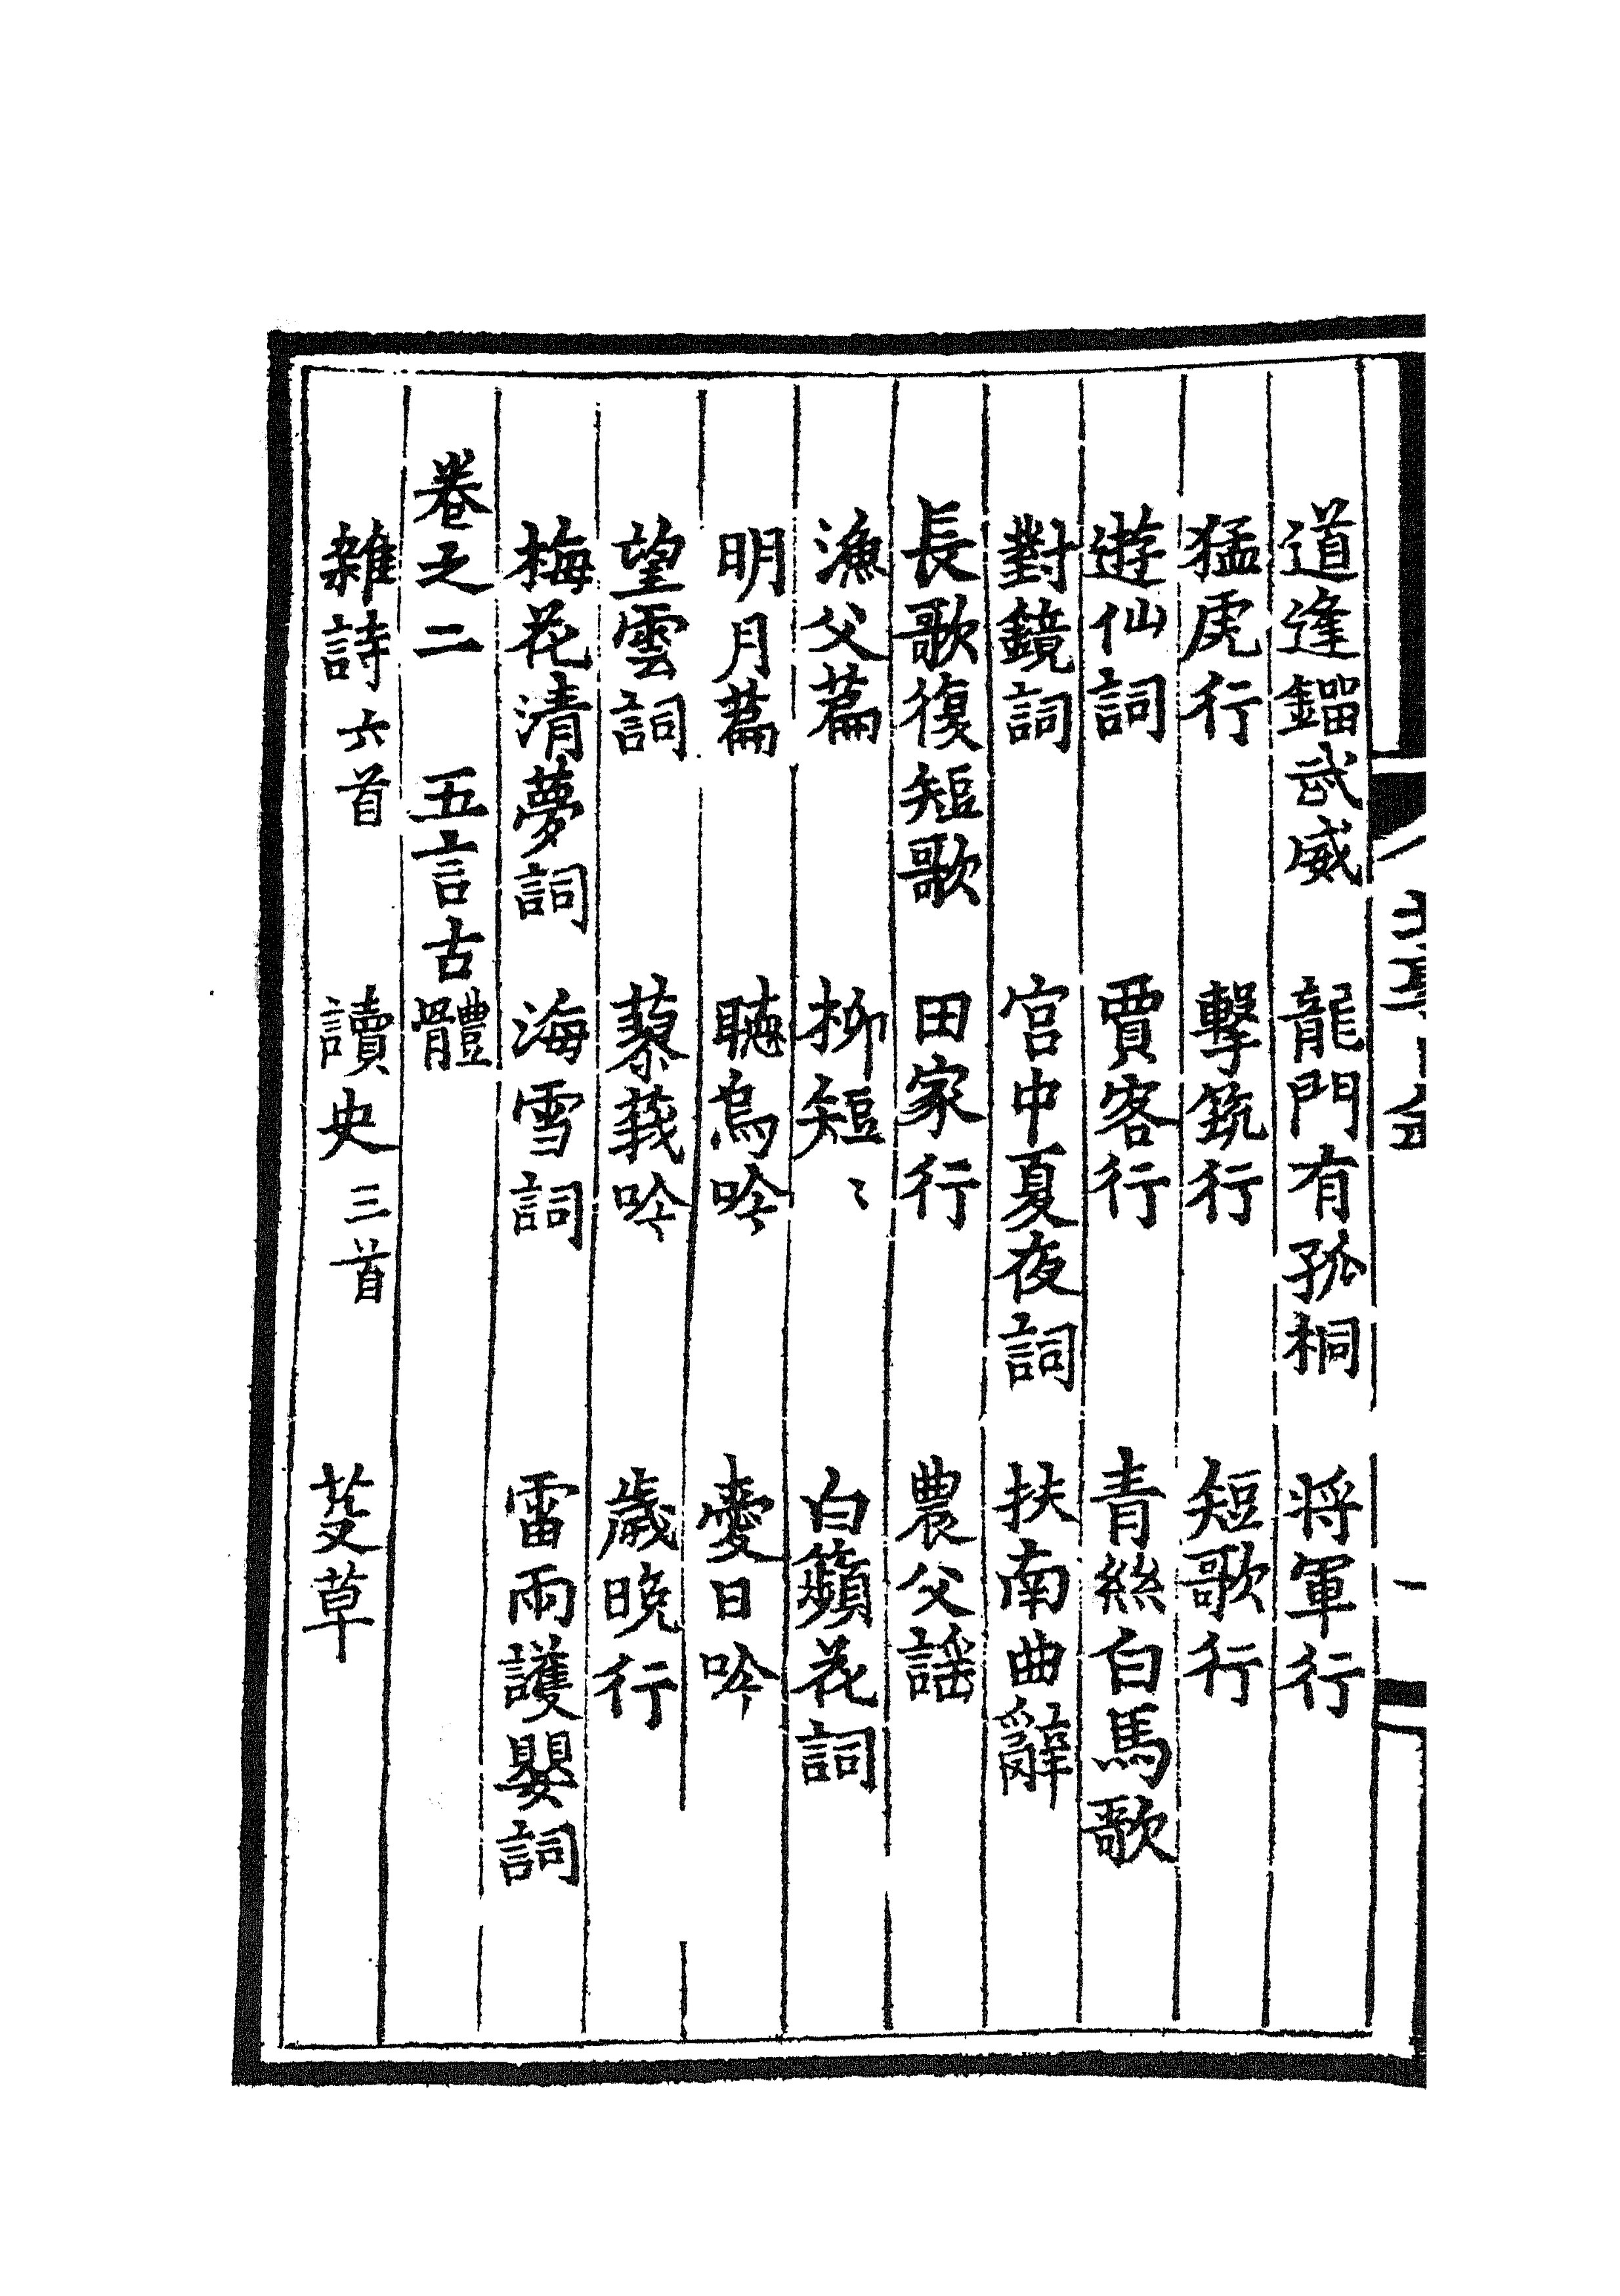 道逢鎦武威　龍門有孤桐　將軍行
猛虎行　擊筑行　短歌行
遊仙詞　賈客行　青絲白馬歌
對鏡詞　宮中夏夜詞　扶南曲辭
長歌復短歌　田家行　農父謡
漁父篇　柳短〻　白蘋花詞
明月篇　聴烏吟　愛日吟
望雲詞　蓼莪吟　歲晚行
梅花清夢詞　海雪詞　雷雨護嬰詞
卷之二　五言古體
雜詩六首　讀史三首　芟草